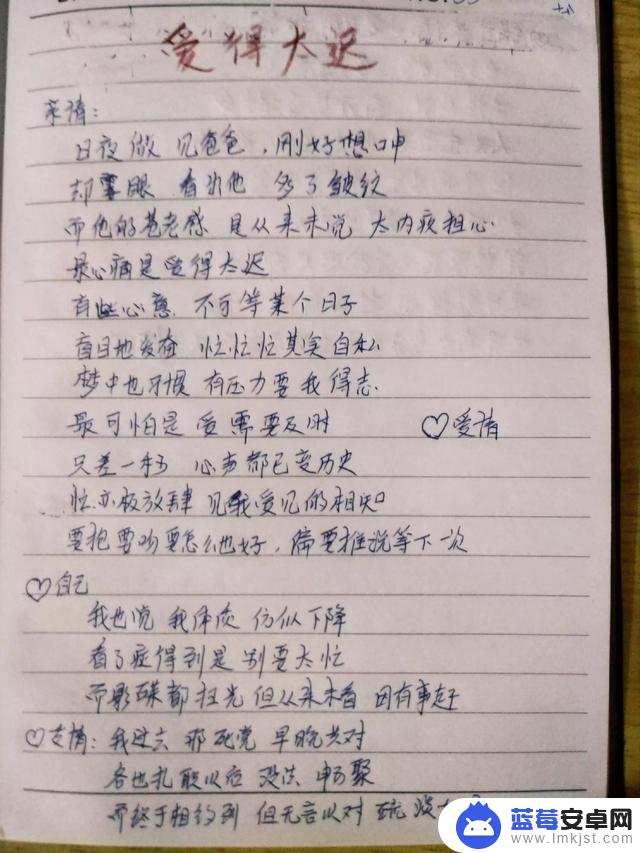 爱得太迟
亲情:
日夜做 见爸爸,刚好想呻
却 眼 看出他 多了皱纹
而他的苍老感 是从来未说 太内疚粗心
最心痛是爱得太迟
有些心意 不可等某个日子
盲目地发奋 忙忙忙其实自私
梦中也习惯 有压力要我得志
最可怕是 爱需要及时
♡爱情
只差一秒 心声都已变历史
忙亦极放肆 见我爱见的相知
要抱要吻要怎么也好,偏要推说等下一次
♡自己
我也觉 我体质 仿似下降
看了症得到是 别要太忙
而影碟都扫光 但从来未看 因有事赶
♡友情: 我过去 那死党 早晚共对
各也扎 职以后 没法 畅聚
而终于相约到 但无言以对 疏 淡
蓝莓安卓网
www.lmkjst.com